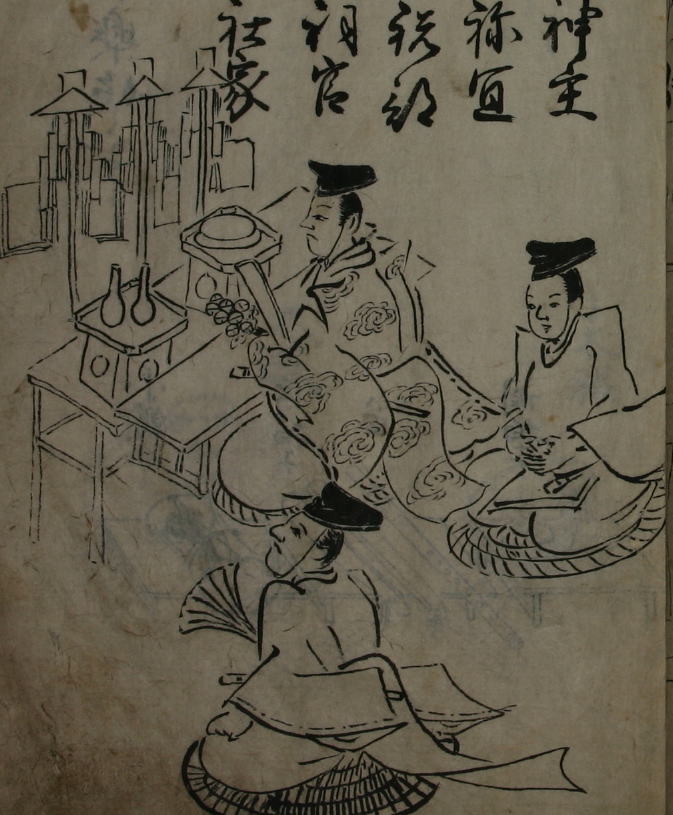 神主
祢宜
祝部
祠官
社家